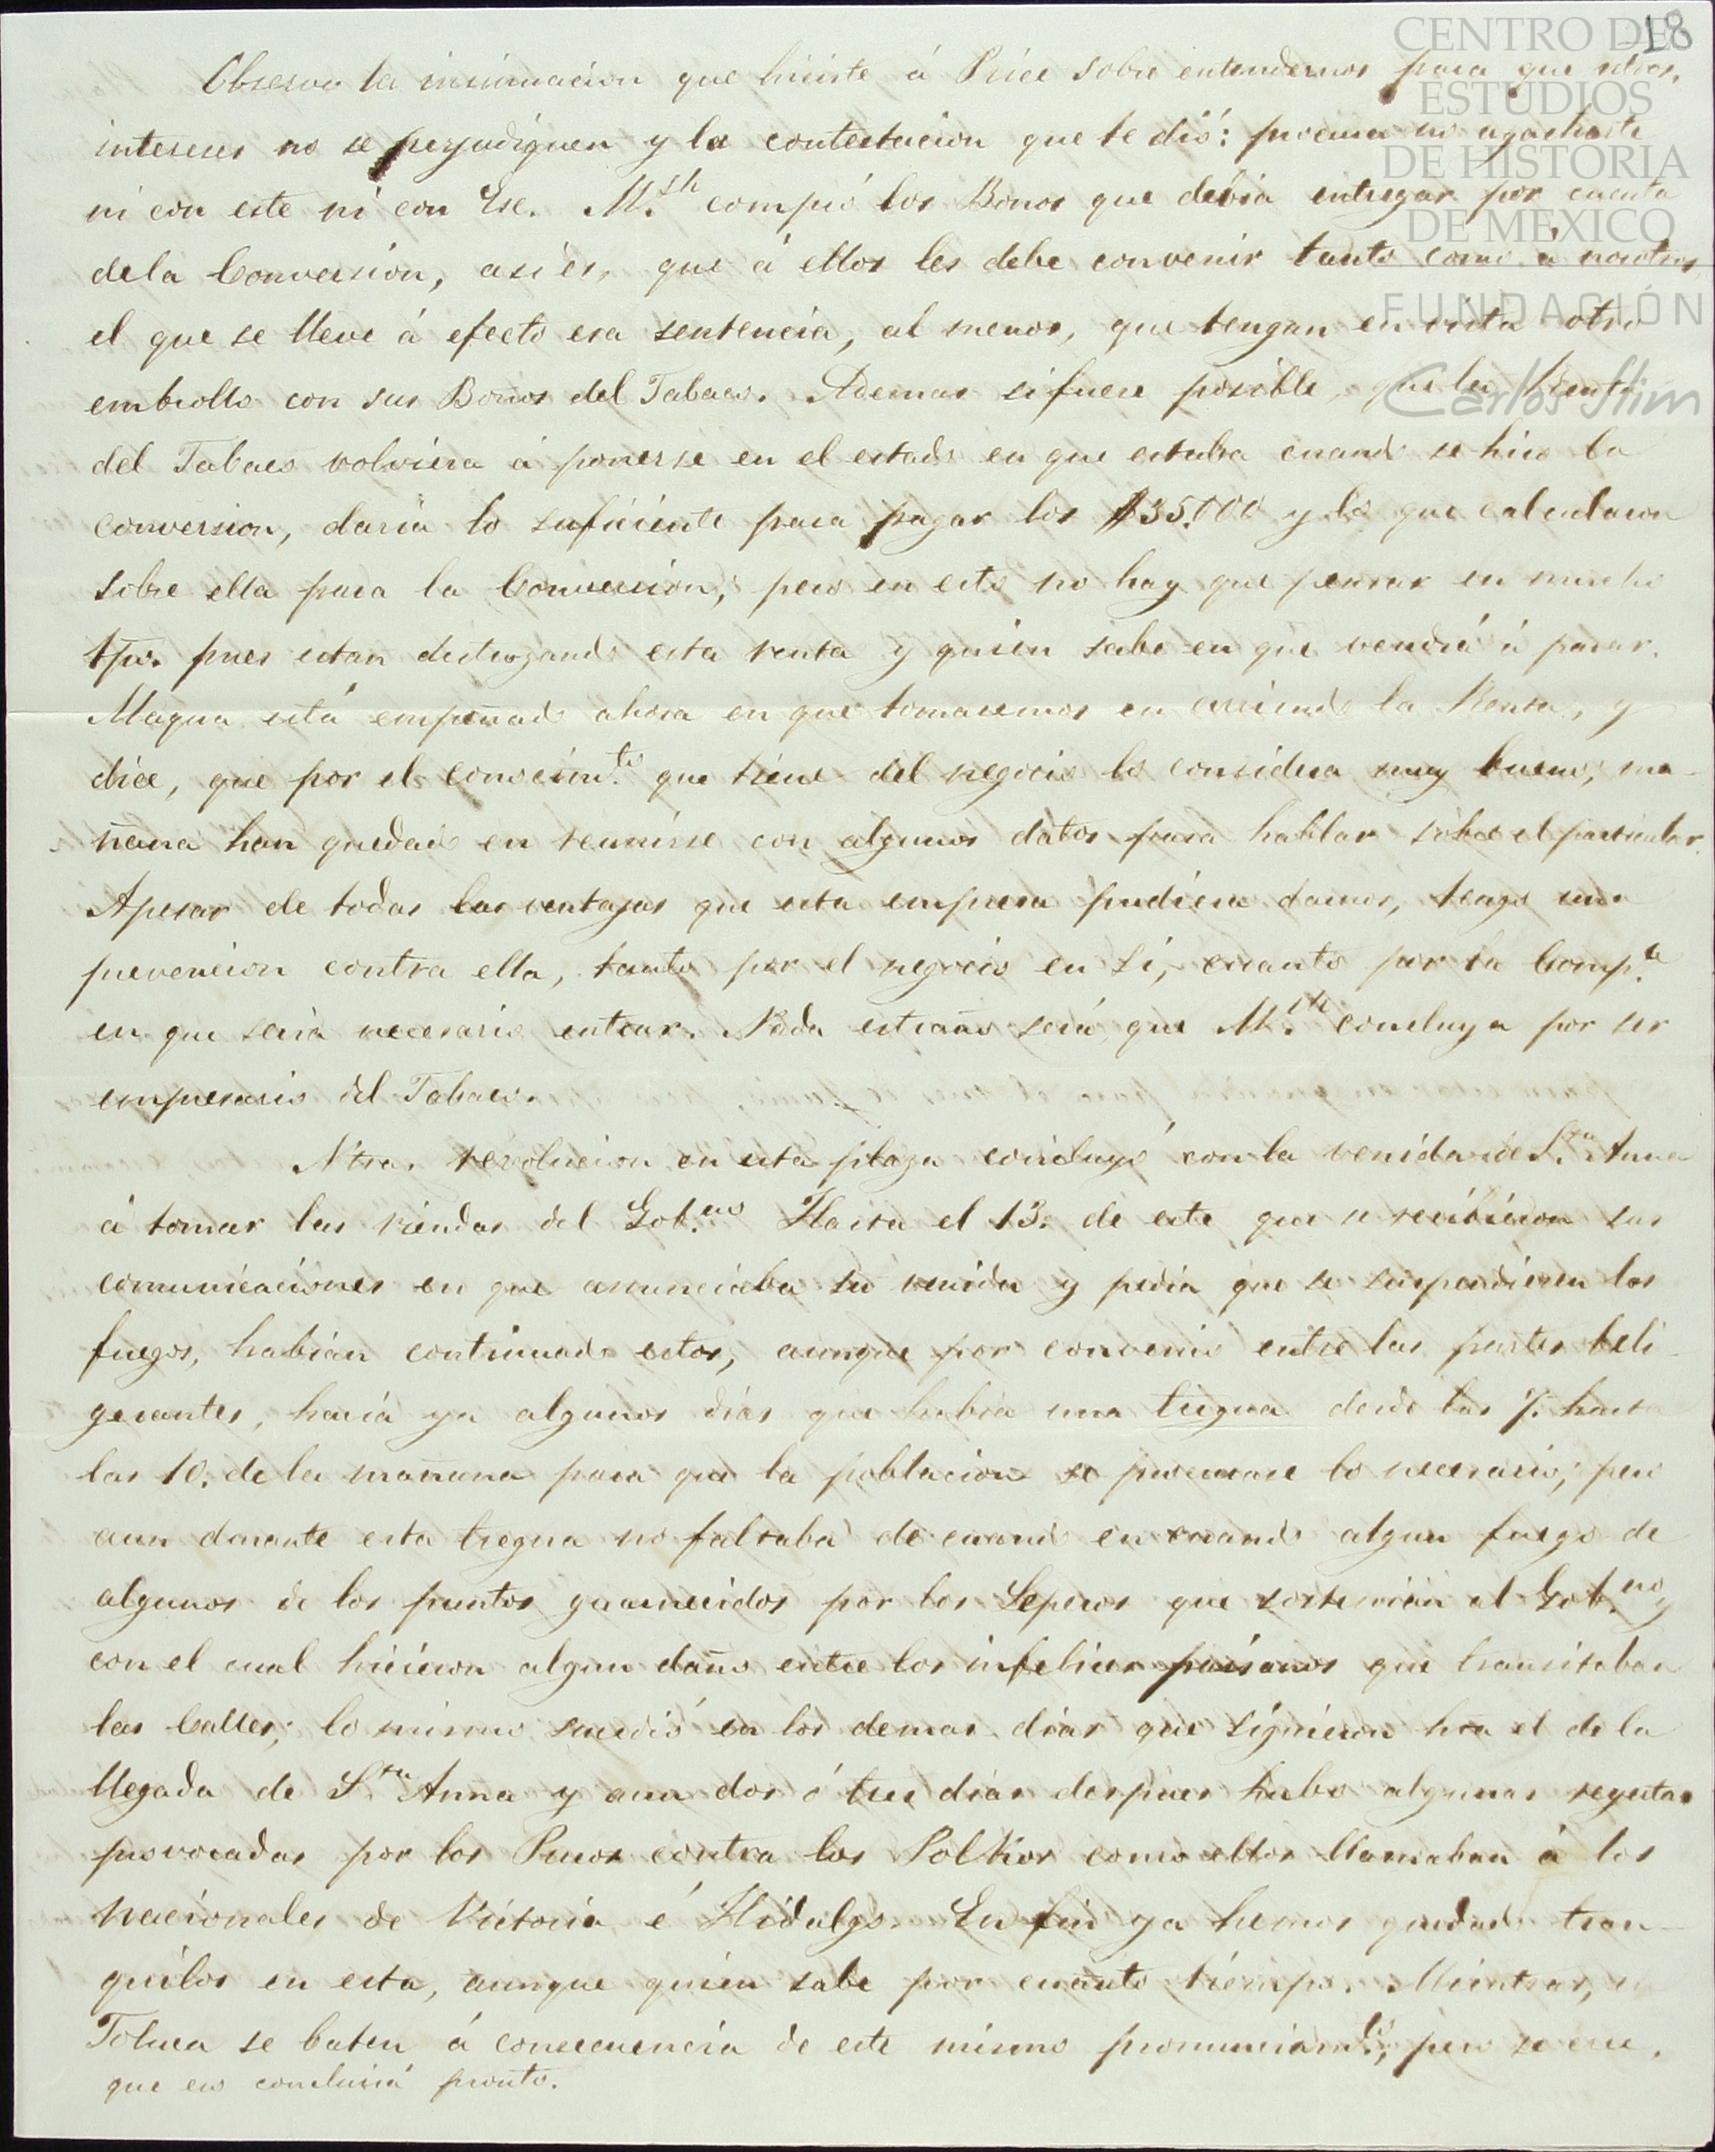 18
CENTRO DE
ESTUDIOS
DE HISTORIA
DE MEXICO
FUNDACIÓN
Carlos Slim
Observo la insinuacion que hiciste á Price sobre entendernos para que ntros.
intereses no se perjudiquen y la contestacion que te dió: procura no agacharte
ni con este ni con Ese. M.sh compró los Bonos que debia entregar por cuenta
dela Conversion, asi es, que á ellos les debe convenir tanto como á nosotros
el que se lleve á efecto esa sentencia, al menos, que tengan en vista otro
embrollo con sus Bonos del Tabaco. Ademas si fuere posible, que la Renta
del Tabaco volviera á ponerse en el estado en que estaba cuando se hizo la
conversion, daria lo suficiente para pagar los $35.000 y lo que calcularon
sobre ella para la Conversion; pero en esto no hay que pensar en mucho
tpo. pues estan destrozando esta renta y quien sabe en que vendrá á parar.
Magua está empeñado ahora en que tomaremos en arriendo la Renta, y
dice, que por el conocim.to que tiene del negocio lo considera muy bueno; ma-
ñana han quedado en reunirse con algunos datos para hablar sobre el particular.
Apesar de todas las ventajas que esta empresa pudiera darnos, tengo una
prevencion contra ella, tanto por el negocio en si, cuanto por la Comp.a
en que seria necesario entrar. Nada estraño será que M.sh concluya por ser
empresario del Tabaco.
Ntra. revolucion en esta plaza concluyó con la venida de S.ta Anna
á tomar las riendas del Gob.no Hasta el 13. de este que se recibieron sus
comunicaciones en que anunciaba su venida y pedia que se suspendiesen los
fuegos, habian continuado estos, aunque por convenio entre las partes beli-
gerantes, hacia ya algunos dias que habia una tregua desde las 7. hasta
las 10. de la mañana para que la poblacion se procurase lo necesario; pero
aun durante esta tregua no faltaba de cuando en cuando algun fuego de
algunos de los puntos guarnecidos por los Leperos que sostenian al Gob.no y
con el cual hicieron algun daño entre los infelices paisanos que transitaban
las Calles; lo mismo sucedió en los demas dias que siguieron hta el de la
llegada de S.ta Anna y aun dos ó tres dias despues hubo algunas reyertas
provocadas por los Puros contra los Polkos como ellos llamaban á los
nacionales de Victoria é Hidalgo. En fin ya hemos quedado tran-
quilos en esta, aunque quien sabe por cuanto tiempo. Mientras, en
Toluca se baten á consecuencia de este mismo pronunciam.to, pero se cree,
que eso concluirá pronto.